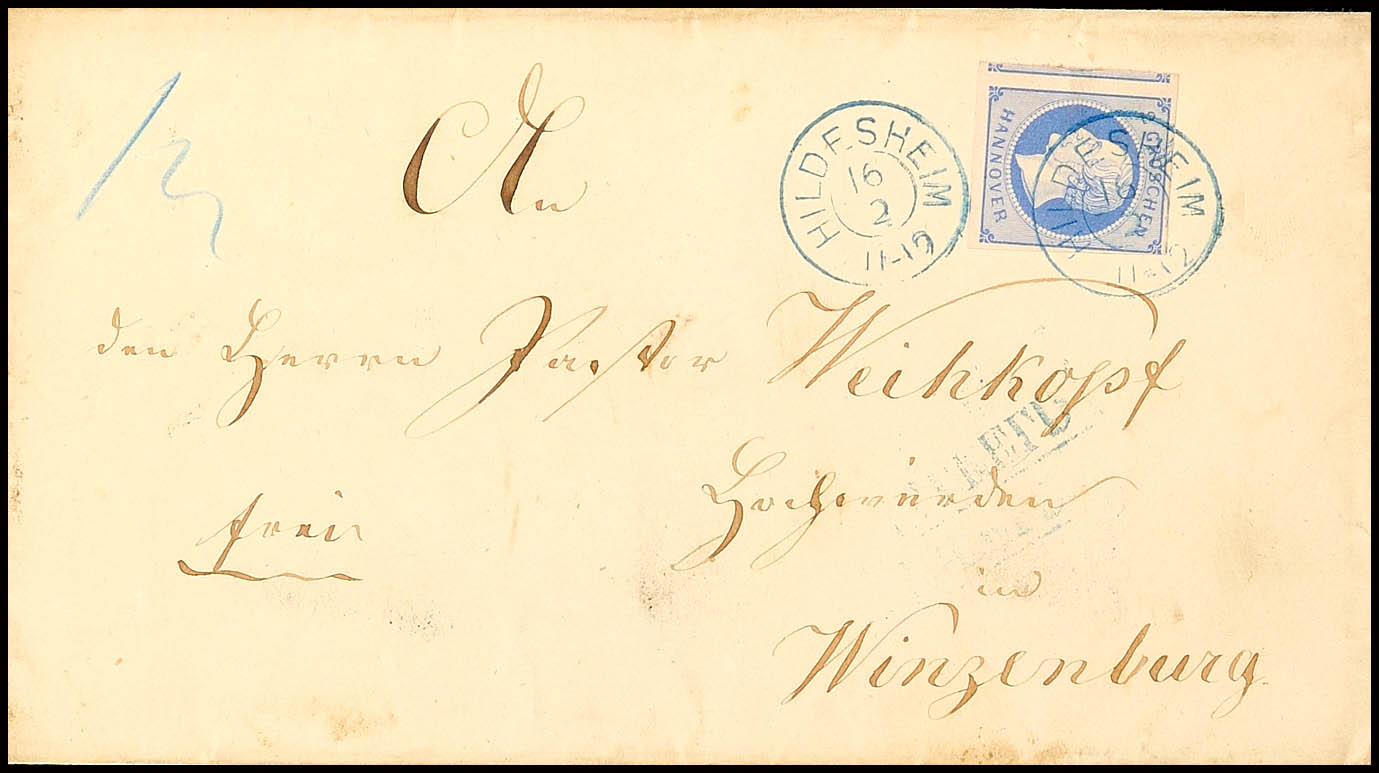 An
HILDESHEIM
16
2
11-12
HANNOVER
2 GROSCHEN
HILDESHEIM
16
2
11-12
den Herrn Pastor Weihkopf
Hochwürden
frei
in
Winzenburg